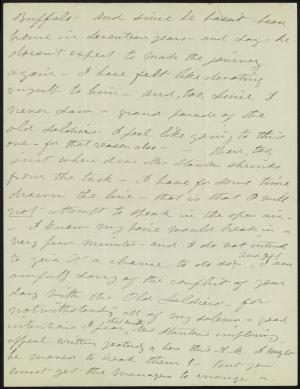 Buffalo - And since he hasn't been
home in seventeen years - and says he
doesn't expect to make the journey
again - I have felt like devoting
myself to him - And, too, since I
never saw a grand parade of the
old soldiers - I feel like going to this
one - for that reason also - Then, too,
just where dear Mrs Stanton shrinks
from the task - I have for some time
drawn the line - that is that I will
not attempt to speak in the open air -
- I know my voice would break in a
very few minutes - and I do not intend
to give it a chance to do so! - I am
awfully sorry of the conflict of your
day with the Old Soldiers - for
notwithstanding all of my solemn & good
intentions I fear, Mrs Stanton's imploring
appeal written yesterday & here this A.M. might
be moved to break them! But you
must get the managers to arrange